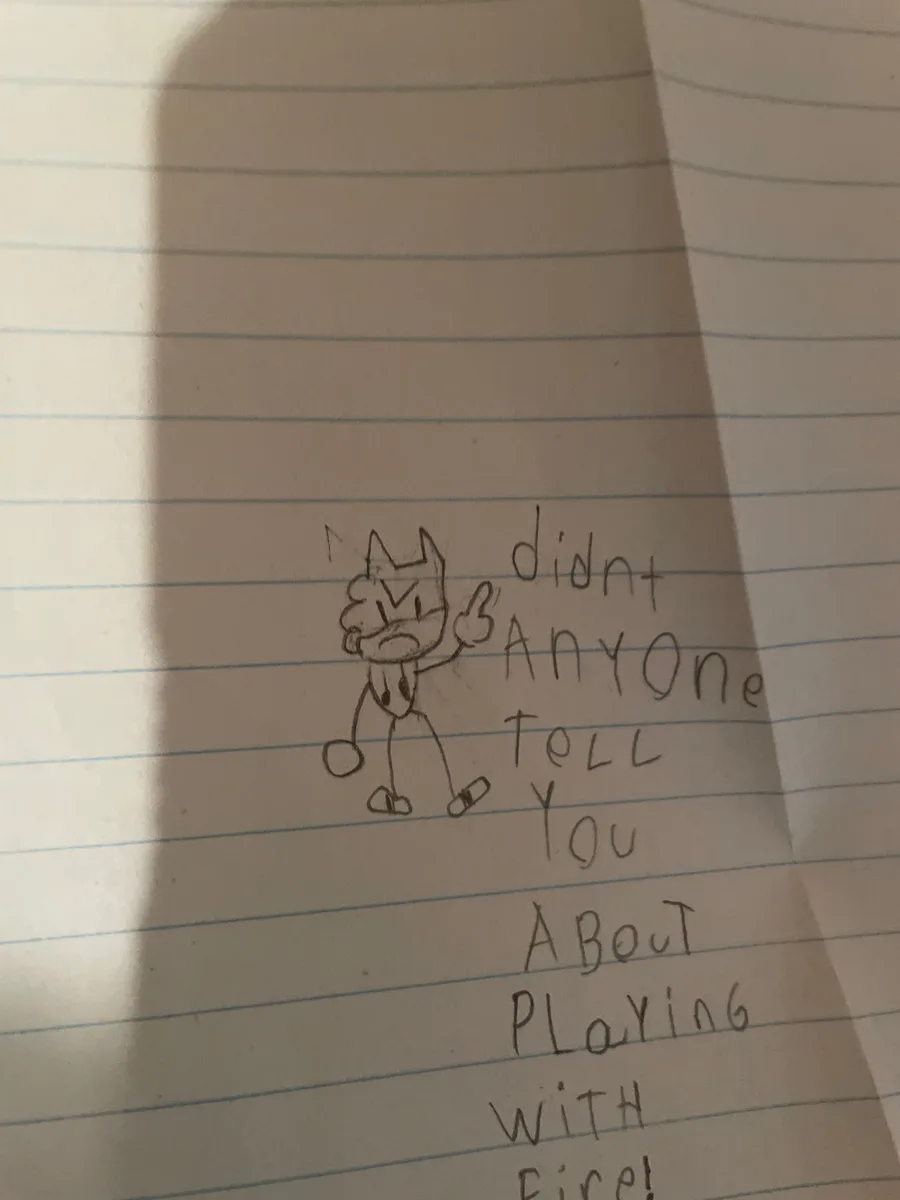 didnt
AnYOne
TeLL
You
ABouT
PLaYinG
WiTH
Fire!